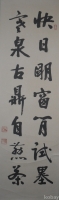 快日明窗閒試墨
寒泉古鼎自煮茶